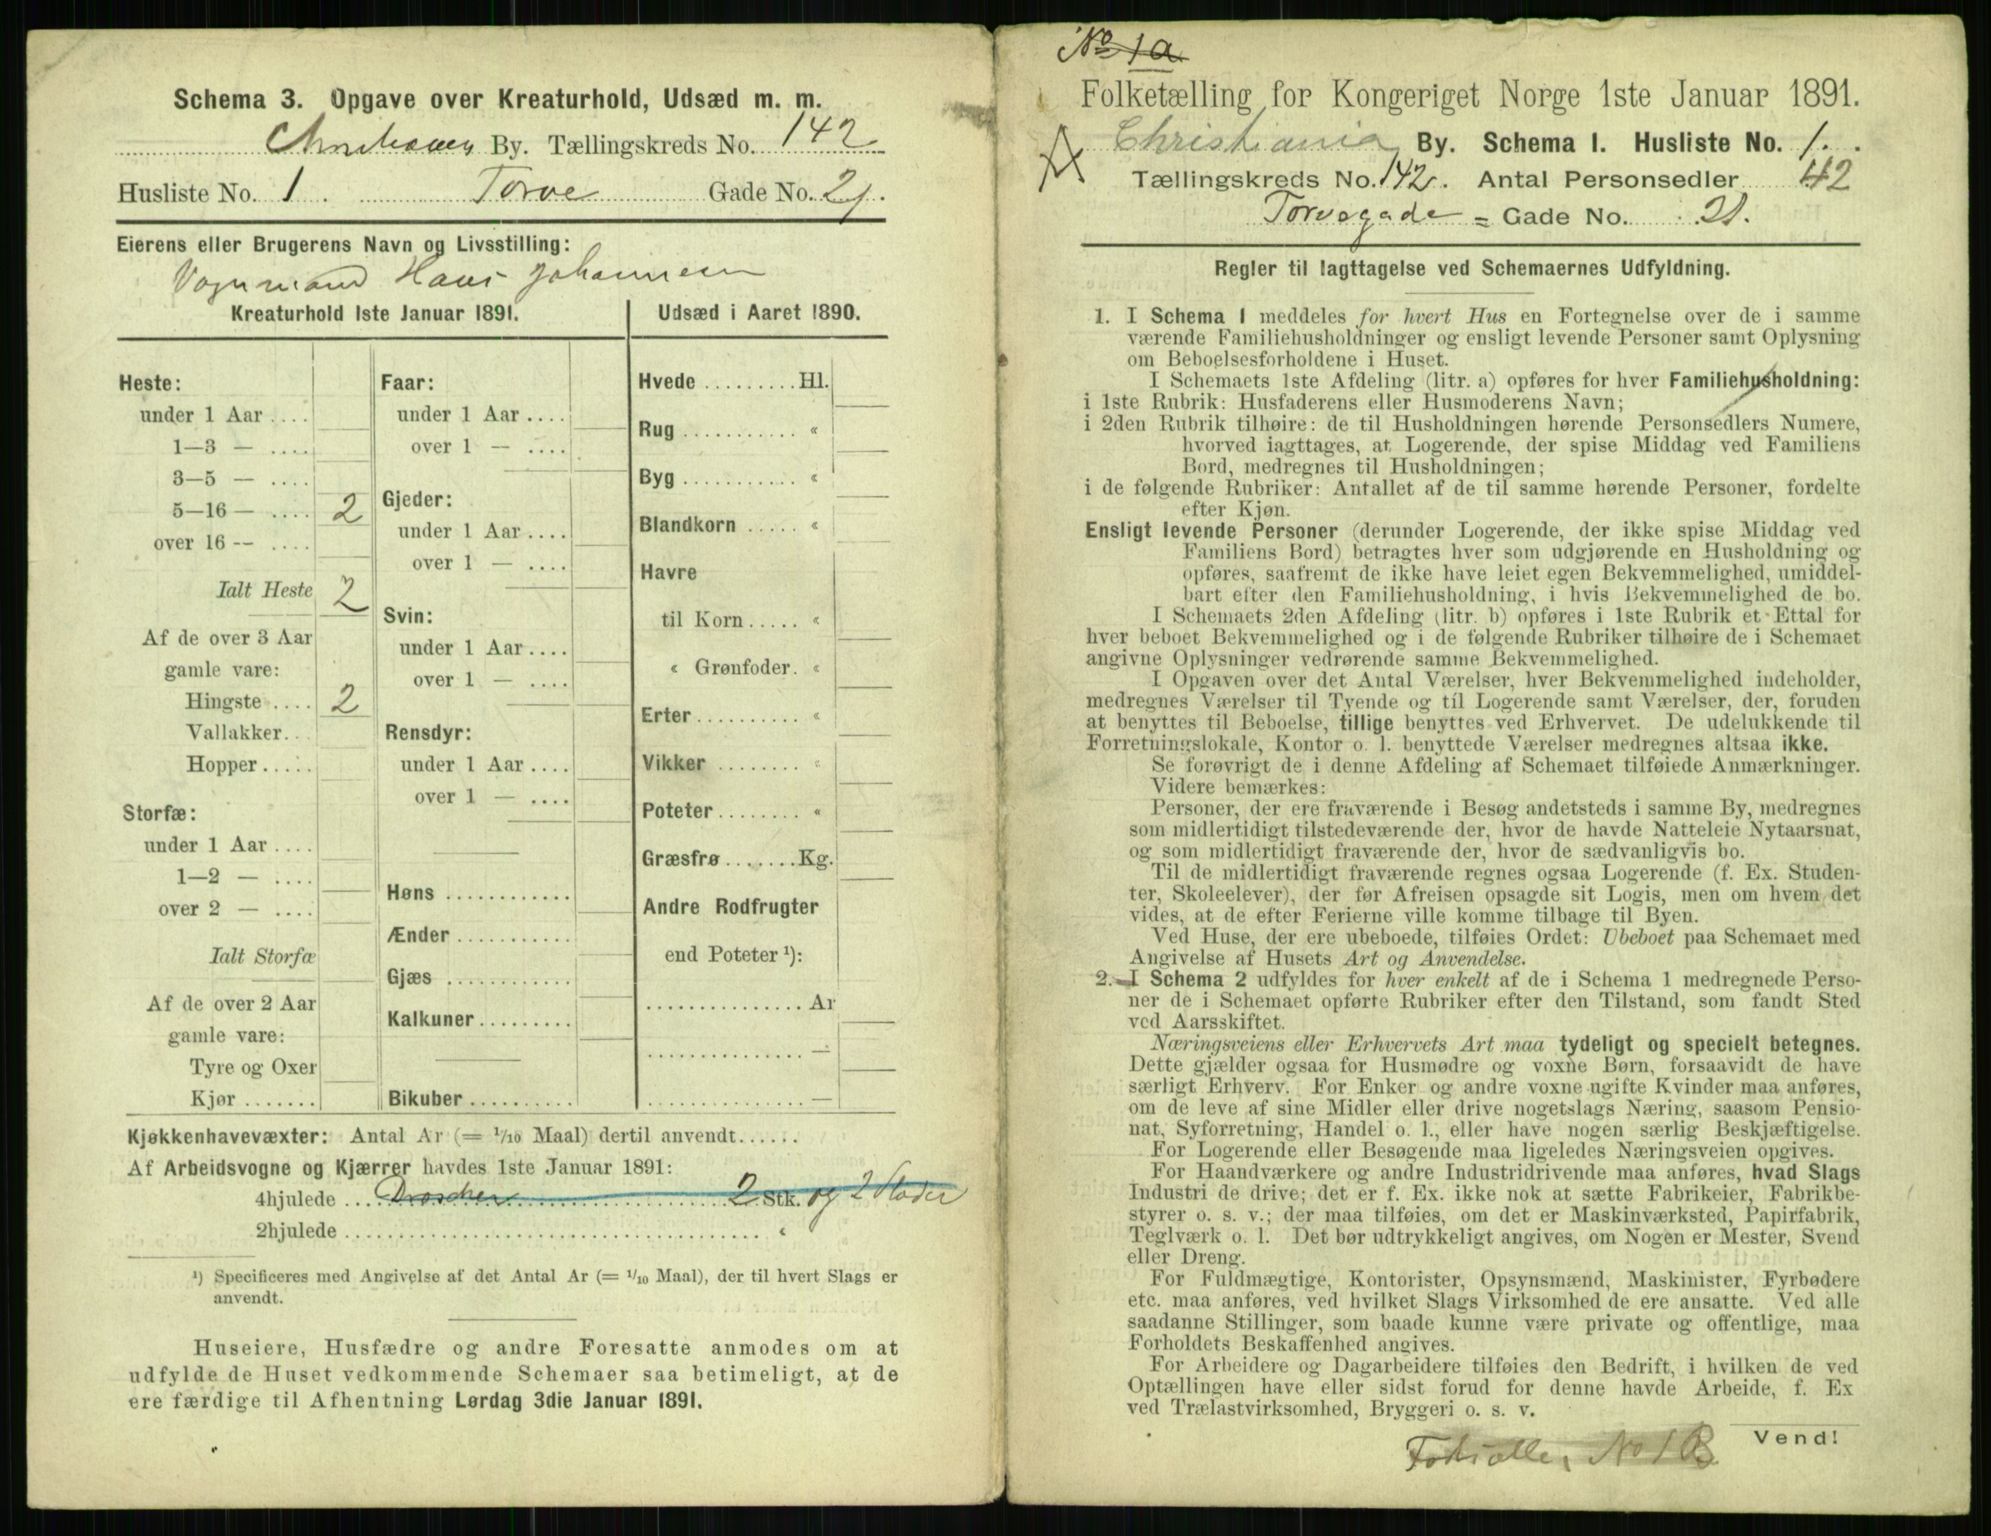 Schema 3. Opgave over Kreaturhold, Udsæd m. m.
By. Tællingskreds No. 142
Husliste No. 1. Torve Gade No. 21.
Eierens eller Brugerens Navn og Livsstilling:
Vognmand Hans Johannesen
Kreaturhold 1ste Januar 1891.
Heste:
under 1 Aar ....
1—3 — ....
3—5 — ....
5—16 — .... 2
over 16 -- ....
Ialt Heste 2
Af de over 3 Aar
gamle vare:
Hingste .... 2
Vallakker...
Hopper .....
Storfæ:
under 1 Aar ....
1—2 — ....
over 2 — ....
Ialt Storfæ
Af de over 2 Aar
gamle vare:
Tyre og Oxer
Kjør .......
Faar:
under 1 Aar ....
over 1 — ....
Gjeder:
under 1 Aar ....
over 1 — ....
Svin:
under 1 Aar ....
over 1 — ....
Rensdyr:
under 1 Aar ....
over 1 — ....
Høns ............
Ænder ...........
Gjæs ............
Kalkuner .........
Bikuber ..........
Udsæd i Aaret 1890.
Hvede ......... Hl.
Rug ........... «
Byg ........... «
Blandkorn ..... «
Havre
til Korn ..... «
« Grønfoder. «
Erter .......... «
Vikker ........ «
Poteter ........ «
Græsfrø ....... Kg.
Andre Rodfrugter
end Poteter ¹):
............... Ar
............... —
............... —
Kjøkkenhavevæxter: Antal Ar (= 1/10 Maal) dertil anvendt ......
Af Arbeidsvogne og Kjærrer havdes 1ste Januar 1891:
4hjulede .... Droscher 2 Stk. og 2 Slæder
2hjulede .................... «
¹) Specificeres med Angivelse af det Antal Ar (= 1/10 Maal), der til hvert Slags er
anvendt.
Huseiere, Husfædre og andre Foresatte anmodes om at
udfylde de Huset vedkommende Schemaer saa betimeligt, at de
ere færdige til Afhentning Lørdag 3die Januar 1891.
No 1a
Folketælling for Kongeriget Norge 1ste Januar 1891.
Christiania By. Schema I. Husliste No. 1.
Tællingskreds No. 142. Antal Personsedler 42
Torvegade = Gade No. 21.
Regler til Iagttagelse ved Schemaernes Udfyldning.
1. I Schema 1 meddeles for hvert Hus en Fortegnelse over de i samme
værende Familiehusholdninger og ensligt levende Personer samt Oplysning
om Beboelsesforholdene i Huset.
I Schemaets 1ste Afdeling (litr. a) opføres for hver Familiehusholdning:
i 1ste Rubrik: Husfaderens eller Husmoderens Navn;
i 2den Rubrik tilhøire: de til Husholdningen hørende Personsedlers Numere,
hvorved iagttages, at Logerende, der spise Middag ved Familiens
Bord, medregnes til Husholdningen;
i de følgende Rubriker: Antallet af de til samme hørende Personer, fordelte
efter Kjøn.
Ensligt levende Personer (derunder Logerende, der ikke spise Middag ved
Familiens Bord) betragtes hver som udgjørende en Husholdning og
opføres, saafremt de ikke have leiet egen Bekvemmelighed, umiddel-
bart efter den Familiehusholdning, i hvis Bekvemmelighed de bo.
I Schemaets 2den Afdeling (litr. b) opføres i 1ste Rubrik et Ettal for
hver beboet Bekvemmelighed og i de følgende Rubriker tilhøire de i Schemaet
angivne Oplysninger vedrørende samme Bekvemmelighed.
I Opgaven over det Antal Værelser, hver Bekvemmelighed indeholder,
medregnes Værelser til Tyende og til Logerende samt Værelser, der, foruden
at benyttes til Beboelse, tillige benyttes ved Erhvervet. De udelukkende til
Forretningslokale, Kontor o. l. benyttede Værelser medregnes altsaa ikke.
Se forøvrigt de i denne Afdeling af Schemaet tilføiede Anmærkninger.
Videre bemærkes:
Personer, der ere fraværende i Besøg andetsteds i samme By, medregnes
som midlertidigt tilstedeværende der, hvor de havde Natteleie Nytaarsnat,
og som midlertidigt fraværende der, hvor de sædvanligvis bo.
Til de midlertidigt fraværende regnes ogsaa Logerende (f. Ex. Studen-
ter, Skoleelever), der før Afreisen opsagde sit Logis, men om hvem det
vides, at de efter Ferierne ville komme tilbage til Byen.
Ved Huse, der ere ubeboede, tilføies Ordet: Ubeboet paa Schemaet med
Angivelse af Husets Art og Anvendelse.
2. I Schema 2 udfyldes for hver enkelt af de i Schema 1 medregnede Perso-
ner de i Schemaet opførte Rubriker efter den Tilstand, som fandt Sted
ved Aarsskiftet.
Næringsveiens eller Erhvervets Art maa tydeligt og specielt betegnes.
Dette gjælder ogsaa for Husmødre og voxne Børn, forsaavidt de have
særligt Erhverv. For Enker og andre voxne ugifte Kvinder maa anføres,
om de leve af sine Midler eller drive nogetslags Næring, saasom Pensio-
nat, Syforretning, Handel o. l., eller have nogen særlig Beskjæftigelse.
For Logerende eller Besøgende maa ligeledes Næringsveien opgives.
For Haandværkere og andre Industridrivende maa anføres, hvad Slags
Industri de drive; det er f. Ex. ikke nok at sætte Fabrikeier, Fabrikbe-
styrer o. s. v.; der maa tilføies, om det er Maskinværksted, Papirfabrik,
Teglværk o. l. Det bør udtrykkeligt angives, om Nogen er Mester, Svend
eller Dreng.
For Fuldmægtige, Kontorister, Opsynsmænd, Maskinister, Fyrbødere
etc. maa anføres, ved hvilket Slags Virksomhed de ere ansatte. Ved alle
saadanne Stillinger, som baade kunne være private og offentlige, maa
Forholdets Beskaffenhed angives.
For Arbeidere og Dagarbeidere tilføies den Bedrift, i hvilken de ved
Optællingen have eller sidst forud for denne havde Arbeide, f. Ex
ved Trælastvirksomhed, Bryggeri o. s. v.
Vend!
No 1 B